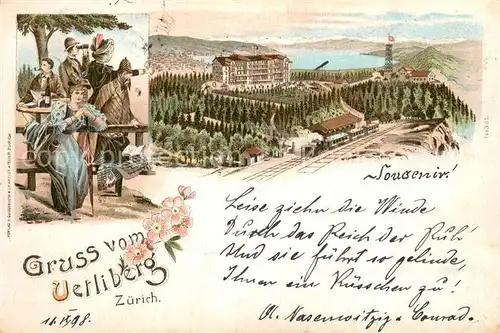 Souvenir!
Leise ziehn die Winde
Durch das Reich der Ruh'
Und sie führt so gelinde,
Ihnen ein Küsschen zu!
Gruss vom
Uetliberg
Zürich.
Conrad.